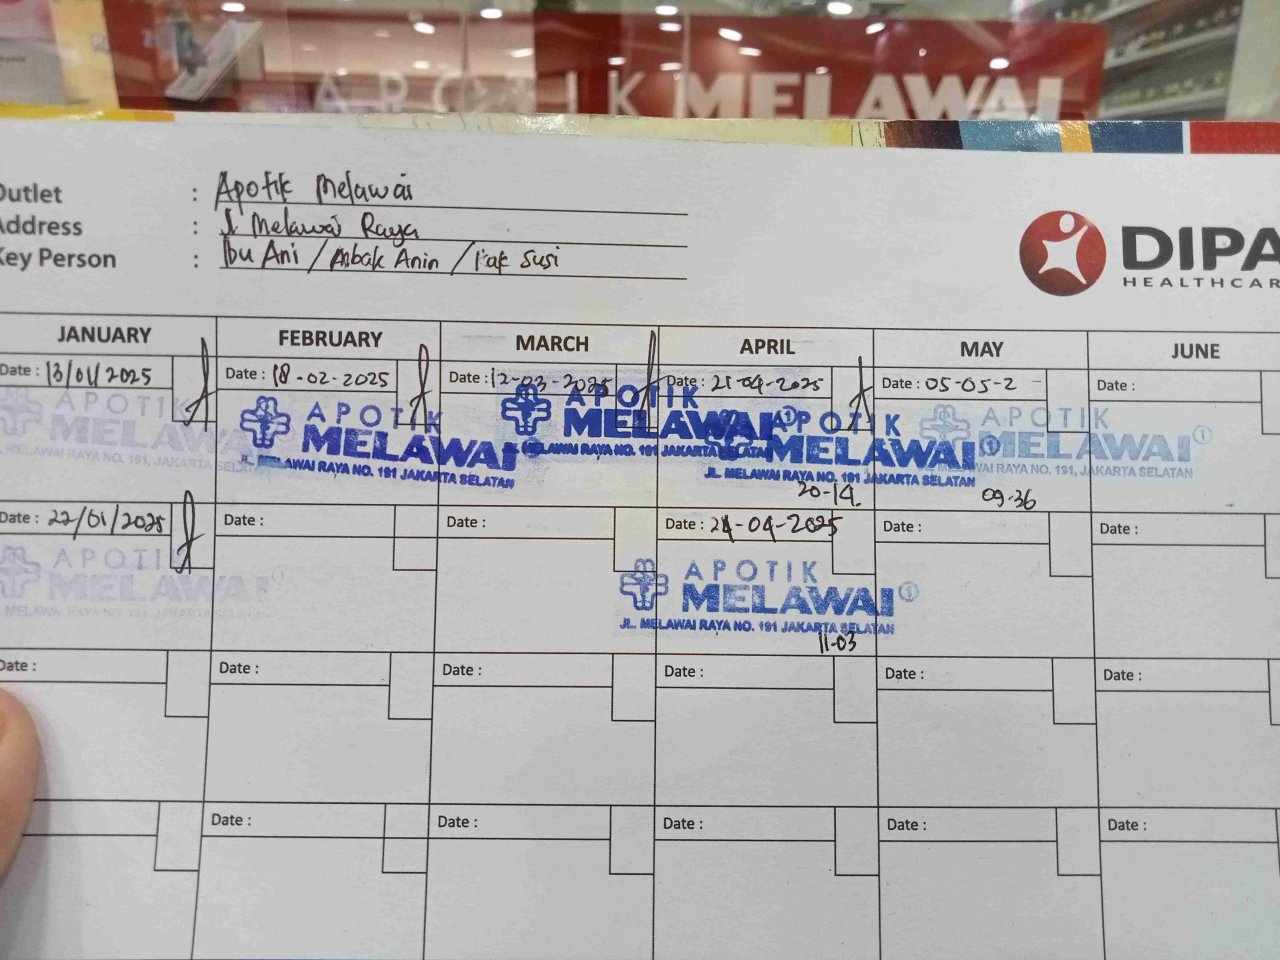 APOTIK MELAWAI
Outlet : Apotik Melawai
Address : Jl Melawai Raya
Key Person : Ibu Ani / Mbak Anin / Pak Susi
DIPA
HEALTHCAR
JANUARY FEBRUARY MARCH APRIL MAY JUNE
Date : 13/01/2025 Date : 18-02-2025 Date : 12-03-2025 Date : 21-04-2025 Date : 05-05-2 Date :
APOTIK APOTIK APOTIK APOTIK APOTIK
MELAWAI MELAWAI MELAWAI MELAWAI MELAWAI
MELAWAI RAYA NO. 191, JAKARTA SELATAN JL. MELAWAI RAYA NO. 191 JAKARTA SELATAN JL. MELAWAI RAYA NO. 191 JAKARTA SELATAN JL. MELAWAI RAYA NO. 191 JAKARTA SELATAN MELAWAI RAYA NO. 191, JAKARTA SELATAN
20-14 09-36
Date : 22/01/2025 Date : Date : Date : 24-04-2025 Date : Date :
APOTIK APOTIK
MELAWAI MELAWAI
MELAWAI JL. MELAWAI RAYA NO. 191 JAKARTA SELATAN
11-03
Date : Date : Date : Date : Date : Date :
Date : Date : Date : Date : Date :